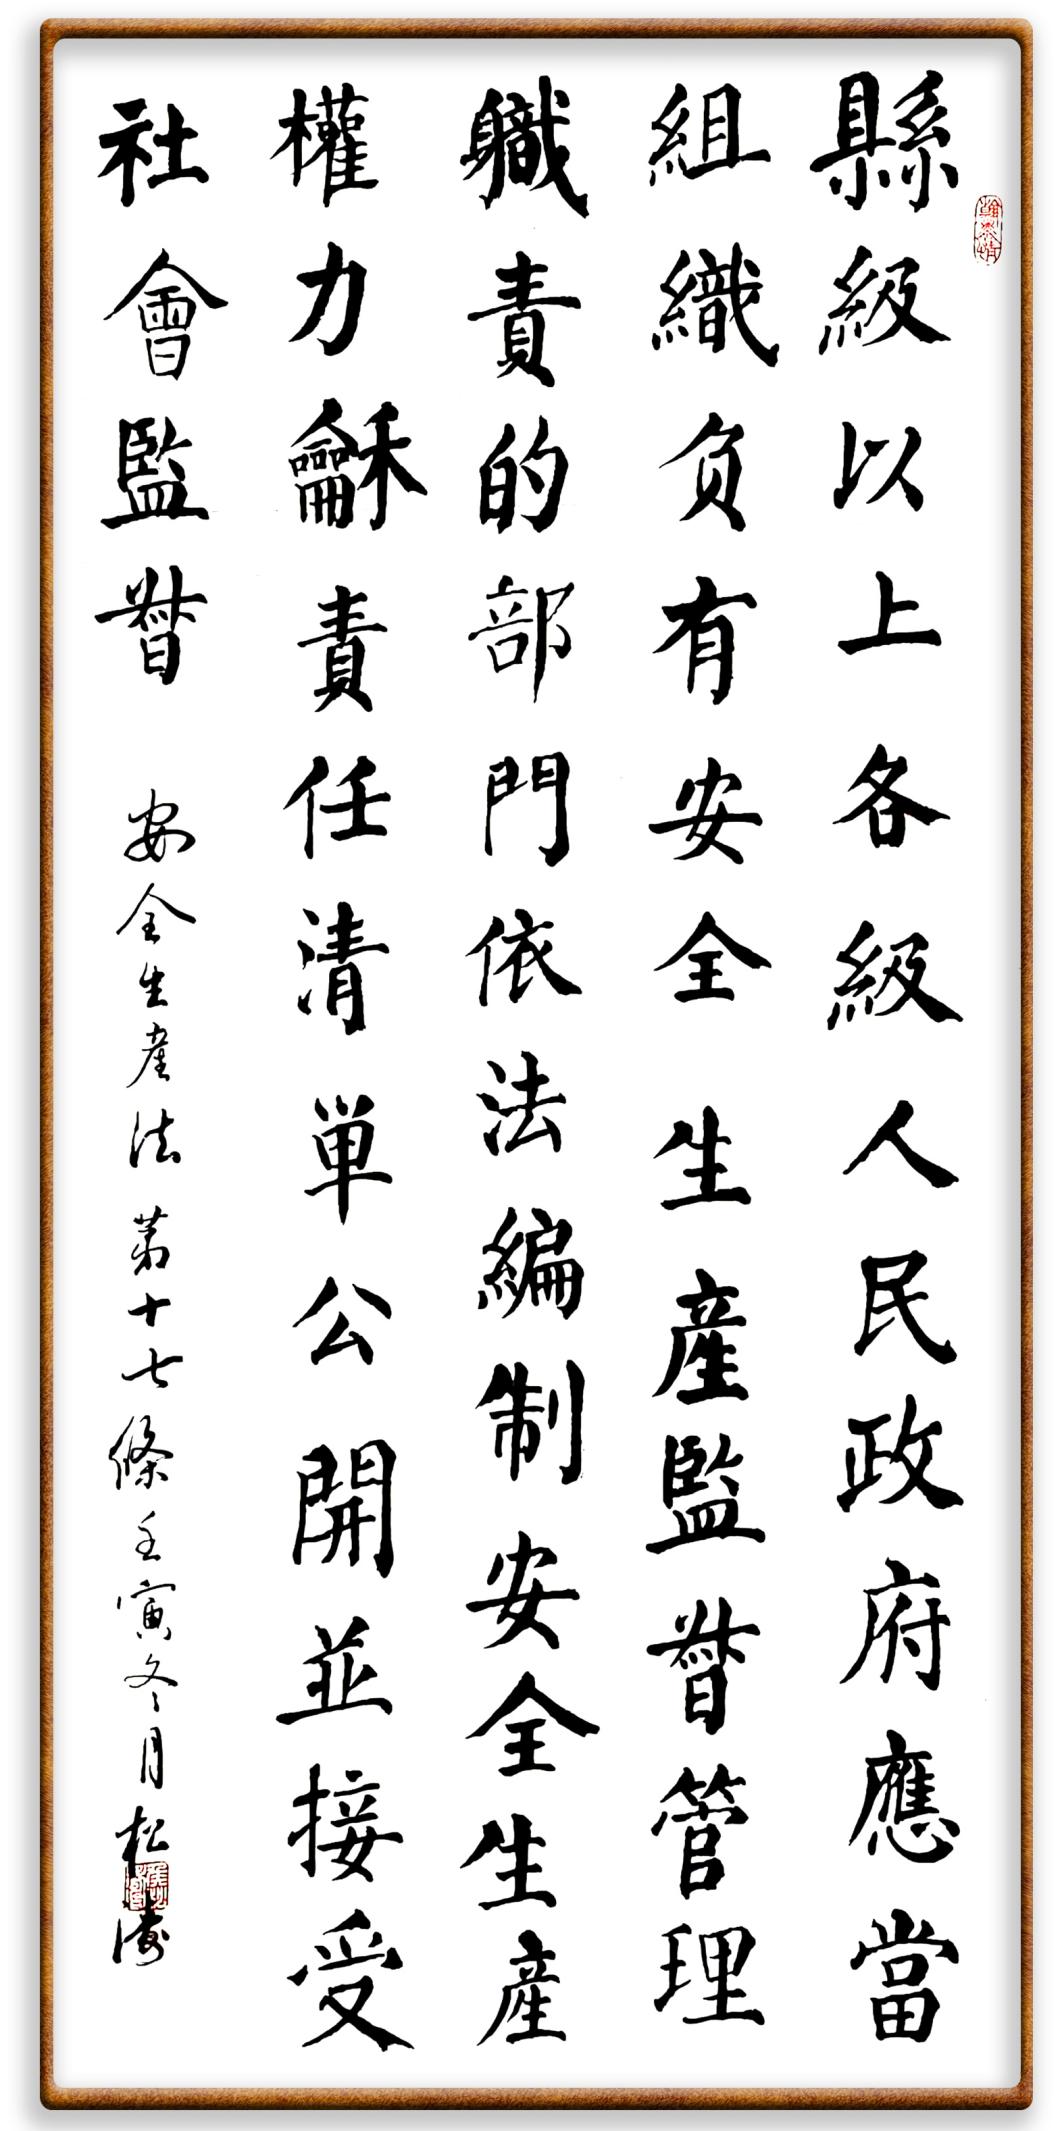 縣級以上各級人民政府應當
組織负有安全生產監督管理
職責的部門依法編制安全生產
權力龢責任清単公開並接受
社會監督
安全生產法第十七條壬寅冬月松濤